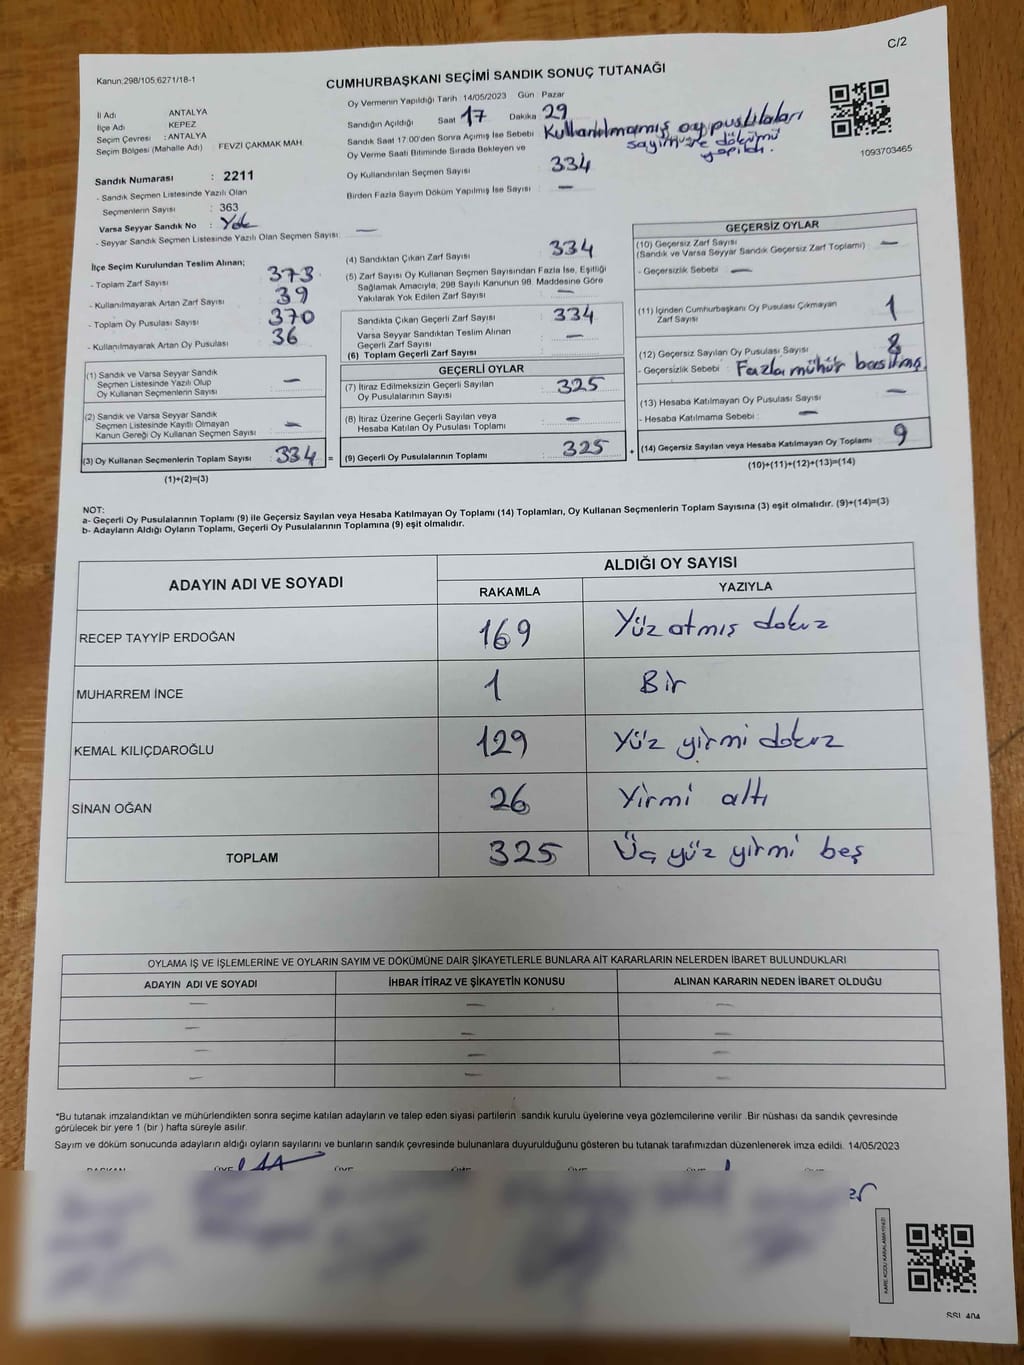 C/2
Kanun:298/105;6271/18-1
CUMHURBAŞKANI SEÇİMİ SANDIK SONUÇ TUTANAĞI
İl Adı ANTALYA
İlçe Adı KEPEZ
Seçim Çevresi : ANTALYA
Seçim Bölgesi (Mahalle Adı) : FEVZİ ÇAKMAK MAH.
Oy Vermenin Yapıldığı Tarih 14/05/2023 Gün Pazar
Sandığın Açıldığı Saat 17 Dakika 29
Sandık Saat 17.00'den Sonra Açımış İse Sebebi Kullanılmamış oy pusulaları
sayım ve dökümü
yapıldı.
Oy Verme Saati Bitiminde Sırada Bekleyen ve
Oy Kullandırılan Seçmen Sayısı 334
Birden Fazla Sayım Döküm Yapılmış İse Sayısı —
1093703465
Sandık Numarası : 2211
- Sandık Seçmen Listesinde Yazılı Olan
Seçmenlerin Sayısı : 363
Varsa Seyyar Sandık No : Yok
- Seyyar Sandık Seçmen Listesinde Yazılı Olan Seçmen Sayısı: —
İlçe Seçim Kurulundan Teslim Alınan;
- Toplam Zarf Sayısı : 373
- Kullanılmayarak Artan Zarf Sayısı : 39
- Toplam Oy Pusulası Sayısı : 370
- Kullanılmayarak Artan Oy Pusulası : 36
(1) Sandık ve Varsa Seyyar Sandık
Seçmen Listesinde Yazılı Olup
Oy Kullanan Seçmen Sayısı : —
(2) Sandık ve Varsa Seyyar Sandık
Seçmen Listesinde Kayıtlı Olmayan
Kanun Gereği Oy Kullanan Seçmen Sayısı : —
(3) Oy Kullanan Seçmenlerin Toplam Sayısı : 334 =
(1)+(2)=(3)
(4) Sandıktan Çıkan Zarf Sayısı : 334
(5) Zarf Sayısı Oy Kullanan Seçmen Sayısından Fazla İse, Eşitliği
Sağlamak Amacıyla, 298 Sayılı Kanunun 98. Maddesine Göre
Yakılarak Yok Edilen Zarf Sayısı : —
Sandıkta Çıkan Geçerli Zarf Sayısı : 334
Varsa Seyyar Sandıktan Teslim Alınan
Geçerli Zarf Sayısı : —
(6) Toplam Geçerli Zarf Sayısı :
GEÇERLİ OYLAR
(7) İtiraz Edilmeksizin Geçerli Sayılan
Oy Pusulasının Sayısı : 325
(8) İtiraz Üzerine Geçerli Sayılan veya
Hesaba Katılan Oy Pusulası Toplamı : —
(9) Geçerli Oy Pusulalarının Toplamı : 325 +
GEÇERSİZ OYLAR
(10) Geçersiz Zarf Sayısı : —
(Sandık ve Varsa Seyyar Sandık Geçersiz Zarf Toplamı)
- Geçersizlik Sebebi : —
(11) İçinden Cumhurbaşkanı Oy Pusulası Çıkmayan
Zarf Sayısı : 1
(12) Geçersiz Sayılan Oy Pusulası Sayısı : 8
- Geçersizlik Sebebi : Fazla mühür basılmış.
(13) Hesaba Katılmayan Oy Pusulası Sayısı : —
- Hesaba Katılmama Sebebi : —
(14) Geçersiz Sayılan veya Hesaba Katılmayan Oy Toplamı : 9
(10)+(11)+(12)+(13)=(14)
NOT:
a- Geçerli Oy Pusulalarının Toplamı (9) ile Geçersiz Sayılan veya Hesaba Katılmayan Oy Toplamı (14) Toplamları, Oy Kullanan Seçmenlerin Toplam Sayısına (3) eşit olmalıdır. (9)+(14)=(3)
b- Adayların Aldığı Oyların Toplamı, Geçerli Oy Pusulalarının Toplamına (9) eşit olmalıdır.
ADAYIN ADI VE SOYADI ALDIĞI OY SAYISI
RAKAMLA YAZIYLA
RECEP TAYYİP ERDOĞAN 169 Yüz atmış dokuz
MUHARREM İNCE 1 Bir
KEMAL KILIÇDAROĞLU 129 Yüz yirmi dokuz
SİNAN OĞAN 26 Yirmi altı
TOPLAM 325 Üç yüz yirmi beş
OYLAMA İŞ VE İŞLEMLERİNE VE OYLARIN SAYIM VE DÖKÜMÜNE DAİR ŞİKAYETLERLE BUNLARA AİT KARARLARIN NELERDEN İBARET BULUNDUKLARI
ADAYIN ADI VE SOYADI İHBAR İTİRAZ VE ŞİKAYETİN KONUSU ALINAN KARARIN NEDEN İBARET OLDUĞU
— — —
— — —
— — —
— — —
*Bu tutanak imzalandıktan ve mühürlendikten sonra seçime katılan adayların ve talep eden siyasi partilerin sandık kurulu üyelerine veya gözlemcilerine verilir. Bir nüshası da sandık çevresinde
görülecek bir yere 1 (bir ) hafta süreyle asılır.
Sayım ve döküm sonucunda adayların aldığı oyların sayılarını ve bunların sandık çevresinde bulunanlara duyurulduğunu gösteren bu tutanak tarafımızdan düzenlenerek imza edildi. 14/05/2023
BAŞKAN ÜYE ÜYE ÜYE ÜYE ÜYE
KARE KODU KARALAMAYINIZ!